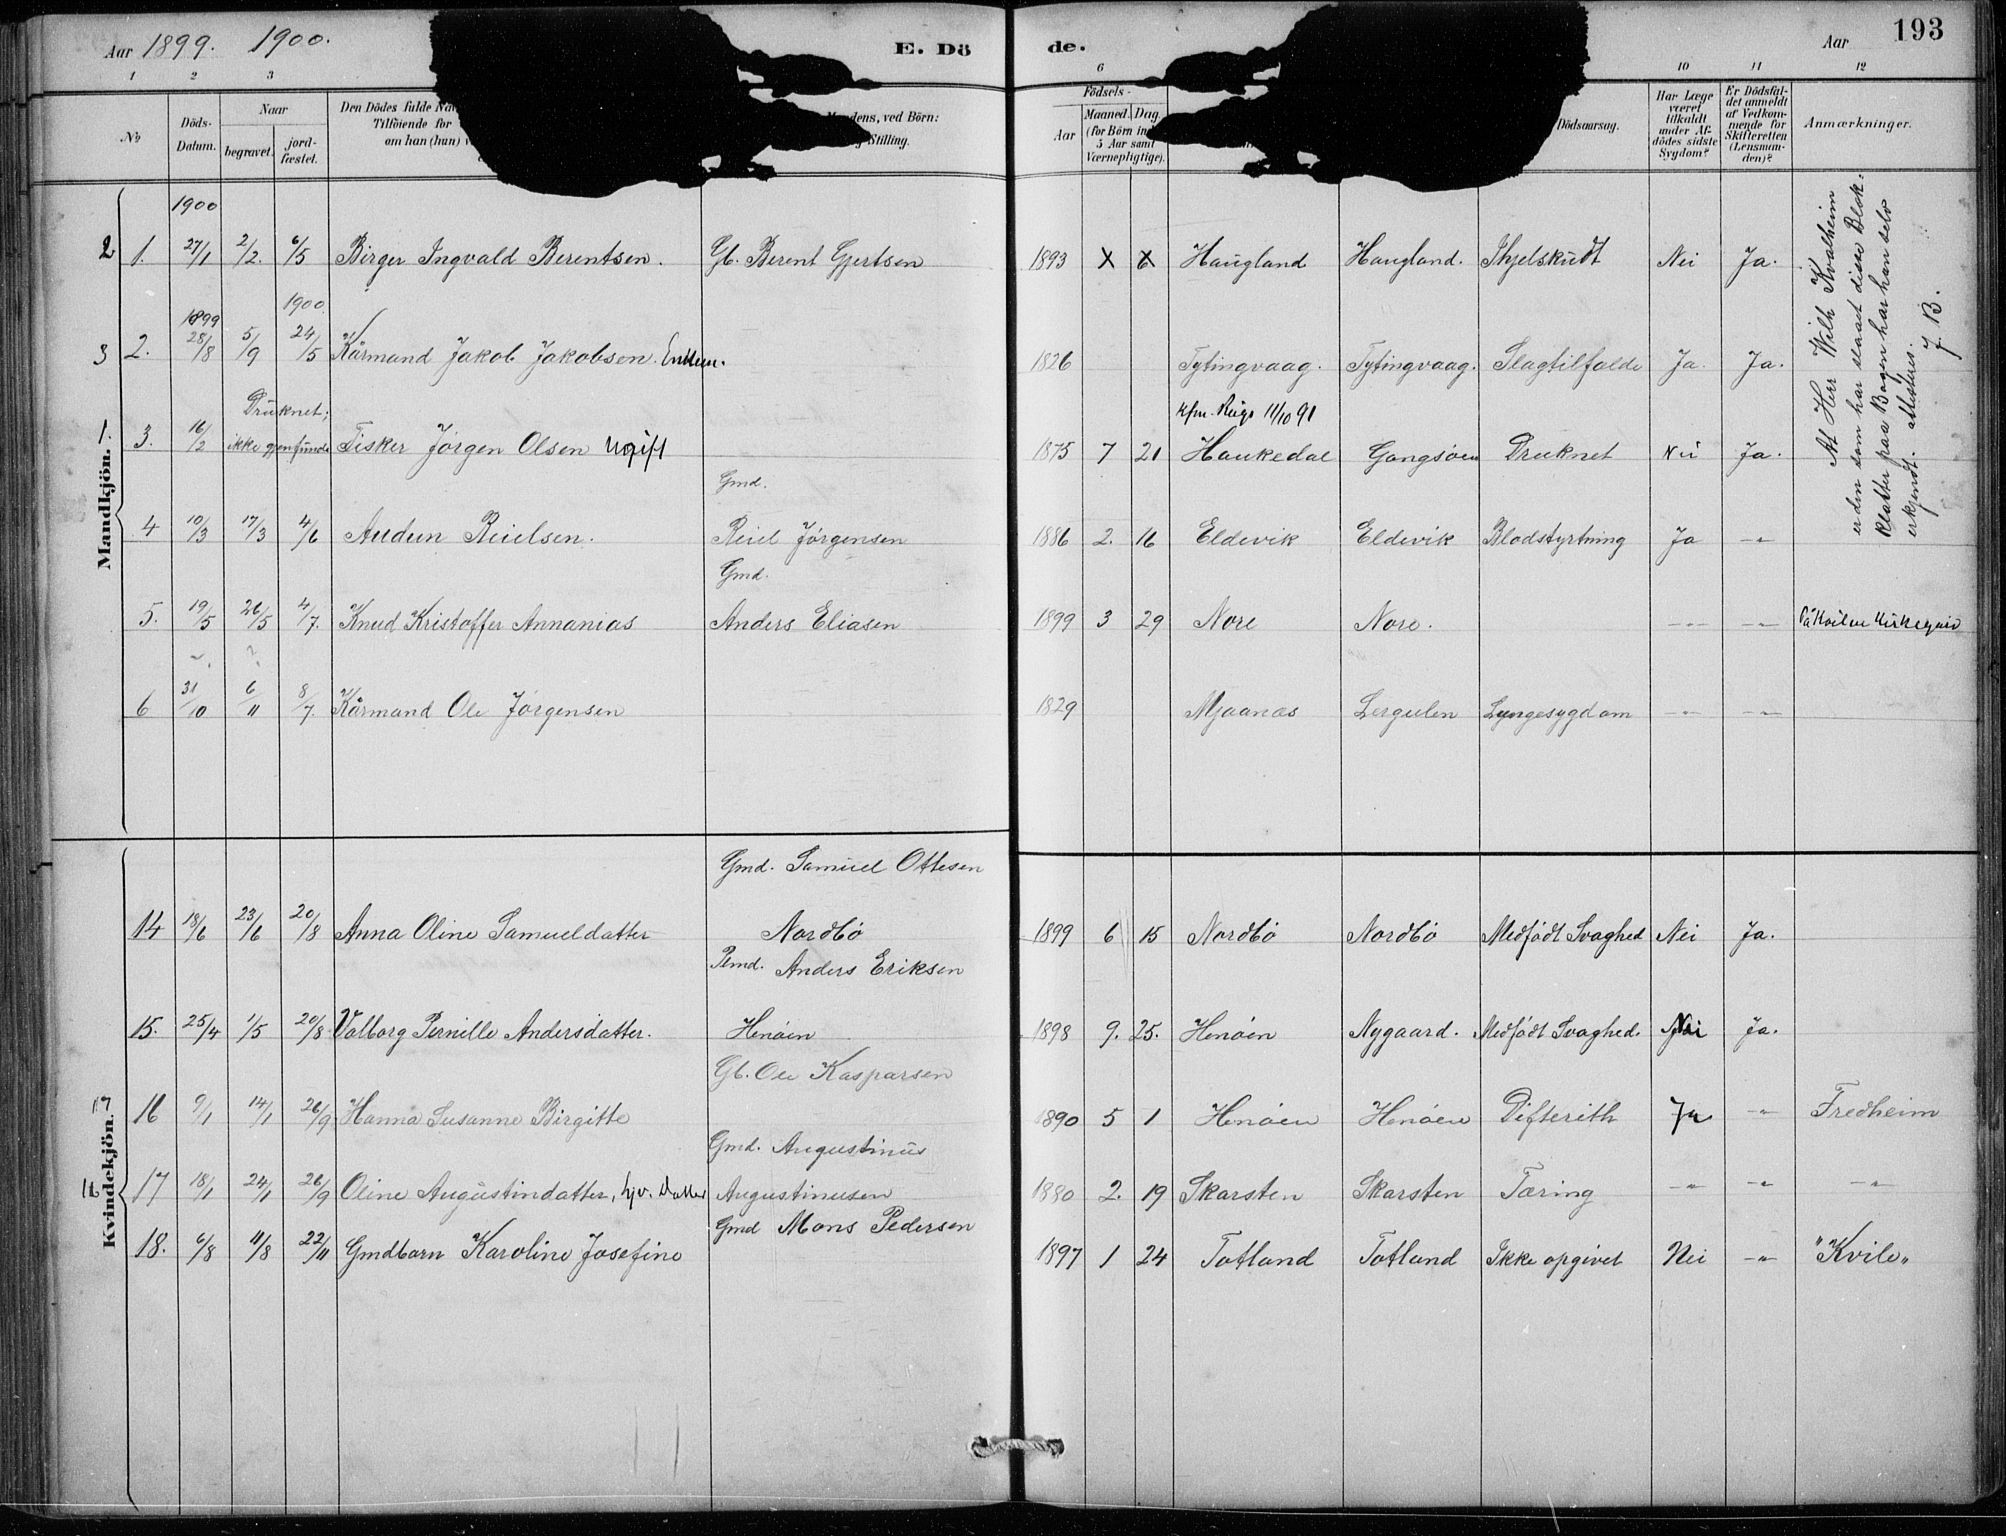 Aar 1899. 1900. E. Dö de. Aar 193
1 2 3 6 10 11 12
No Döds-Datum. Naar begravet. jord-fæstet. Den Dödes fulde Tilföiende for om han (hun) ved Börn: Stilling. Födsels- Aar Maaned. Dag. (for Börn 5 Aar samt Værnepligtige). Dödsaarsag. Har Læge været tilkaldt under Afdödes sidste Sygdom? Er Dödsfaldet anmeldt af Vedkommende for Skifteretten (Lensmanden)? Anmærkninger.
Mandkjön.
1900
2 1. 27/1 2/2. 6/5 Birger Ingvald Berentsen. Gb. Berent Gjertsen 1893 X 6 Haugland Haugland. Ihjelskudt Nei Ja.
1899 1900.
3 2. 28/8 5/9 24/5 Kårmand Jakob Jakobsen. Enkem. 1826 Tytingvaag. Tytingvaag. Slagtilfælde Ja. Ja.
Druknet; kfm. 11/10 91
1. 3. 16/2 ikke gjenfunde Fisker Jörgen Olsen Ugift 1875 7 21 Haukedal Gangsöen Druknet Nei Ja.
Gmd.
4 10/3 17/3 4/6 Audun Reielsen. Reiel Jörgensen 1886 2. 16 Eldevik Eldevik Blodstyrtning Ja -"-
Gmd.
5. 19/5 26/5 4/7. Knud Kristoffer Annanias Anders Eliasen 1899 3 29 Nore Nore. -"- -"- På Kvilen Kirkegaard
6 31/10 6/11 8/7. Kårmand Ole Jörgensen 1829 Mjaanæs Lergulen Lungesygdom -"- -"-
At Herr Wilh Kvalheim
er den som har slaaet disse Blæk-
klatter paa Bogen har han selv
erkjendt. attesteres.
J. B.
Kvindekjön.
Gmd. Samuel Ottesen
14 18/6 23/6 20/8 Anna Oline Samueldatter Nordbö 1899 6 15 Nordbö Nordbö Medfödt Svaghed Nei Ja.
Pmd. Anders Eriksen
15. 25/4 1/5 20/8 Valborg Pernille Andersdatter. Henöen 1898 9. 25. Henöen Nygaard. Medfödt Svaghed. Nei Ja.
Gb. Ole Kasparsen
17 16 9/1 14/1 26/9 Hanna Susanne Birgitte 1890 5 1 Henöen Henöen Difterith Ja -"- Fredheim
Gmd. Augustinus
16 17 18/1 24/1 26/9 Oline Augustindatter, hjv. Datter Augustinusen 1880 2. 19 Skarsten Skarsten Tæring -"- -"- -"-
Gmd Mons Pedersen
18. 6/8 11/8 22/11 Gmdbarn Karoline Josefine 1897 1 24 Totland Totland Ikke opgivet Nei -"- "Kvile"